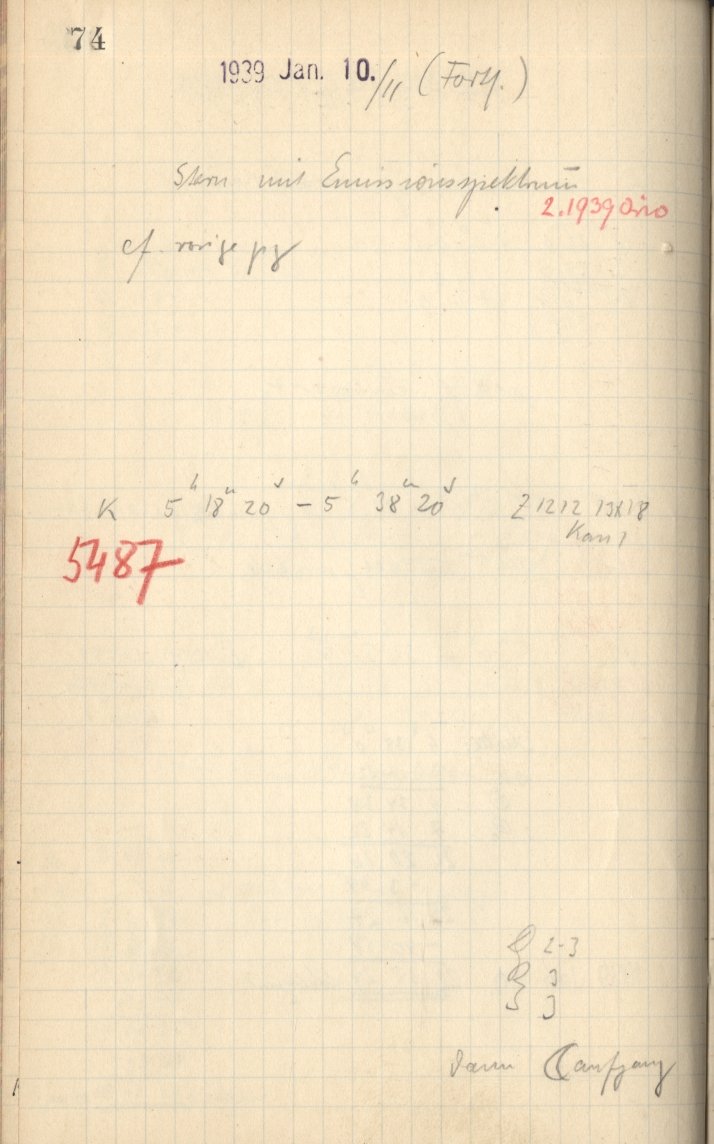 74
1939 Jan. 10./11 (Forts.)
Stern mit Emissionsspektrum
2.1939 Orio
cf. vorige pg
K 5ʰ 18ᵐ 20ˢ – 5ʰ 38ᵐ 20ˢ Z 1212 13x18
5487
2-3
3
3
dann ☾aufgang